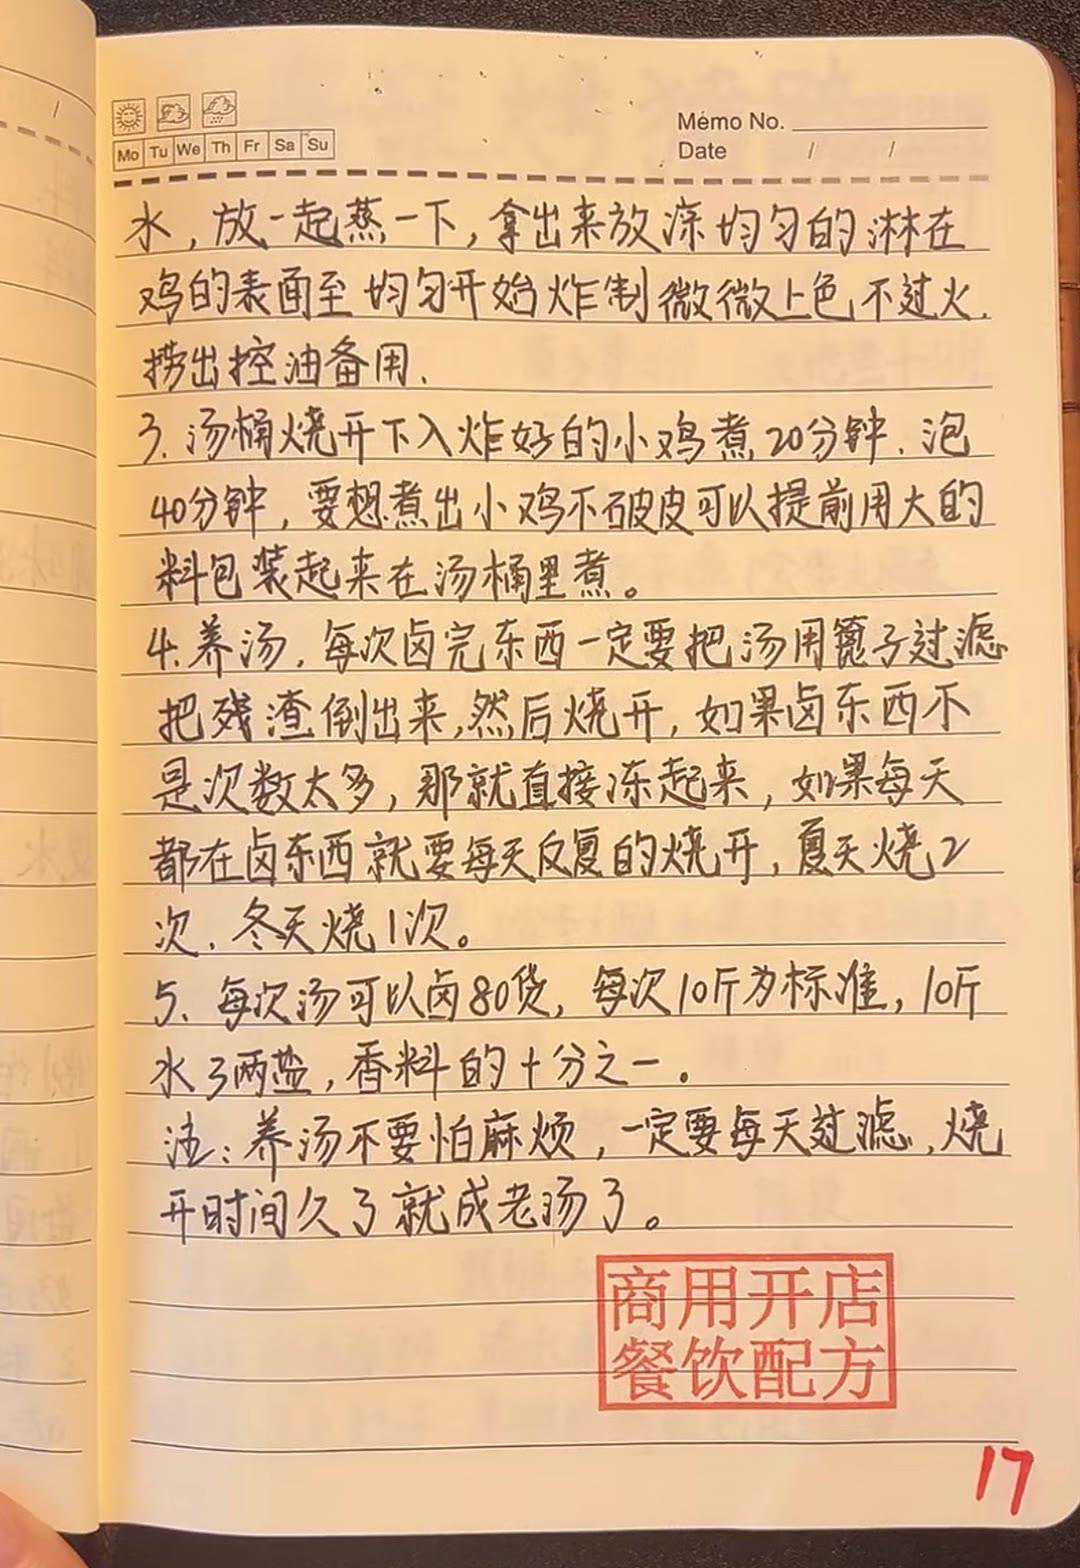 Memo No.
Mo Tu We Th Fr Sa Su
Date / /
水，放一起蒸一下，拿出来放凉均匀的淋在
鸡的表面至均匀开始炸制微微上色,不过火.
捞出控油备用.
3.汤桶烧开下入炸好的小鸡煮20分钟.泡
40分钟，要想煮出小鸡不破皮可以提前用大的
料包装起来在汤桶里煮。
4.养汤.每次卤完东西一定要把汤用篦子过滤
把残渣倒出来,然后烧开，如果卤东西不
是次数太多，那就直接冻起来，如果每天
都在卤东西就要每天反复的烧开，夏天烧2
次.冬天烧1次。
5.每次汤可以卤80货，每次10斤为标准，10斤
水3两盐，香料的十分之一.
注:养汤不要怕麻烦，一定要每天过滤.烧
开时间久了就成老汤了。
商用开店
餐饮配方
17